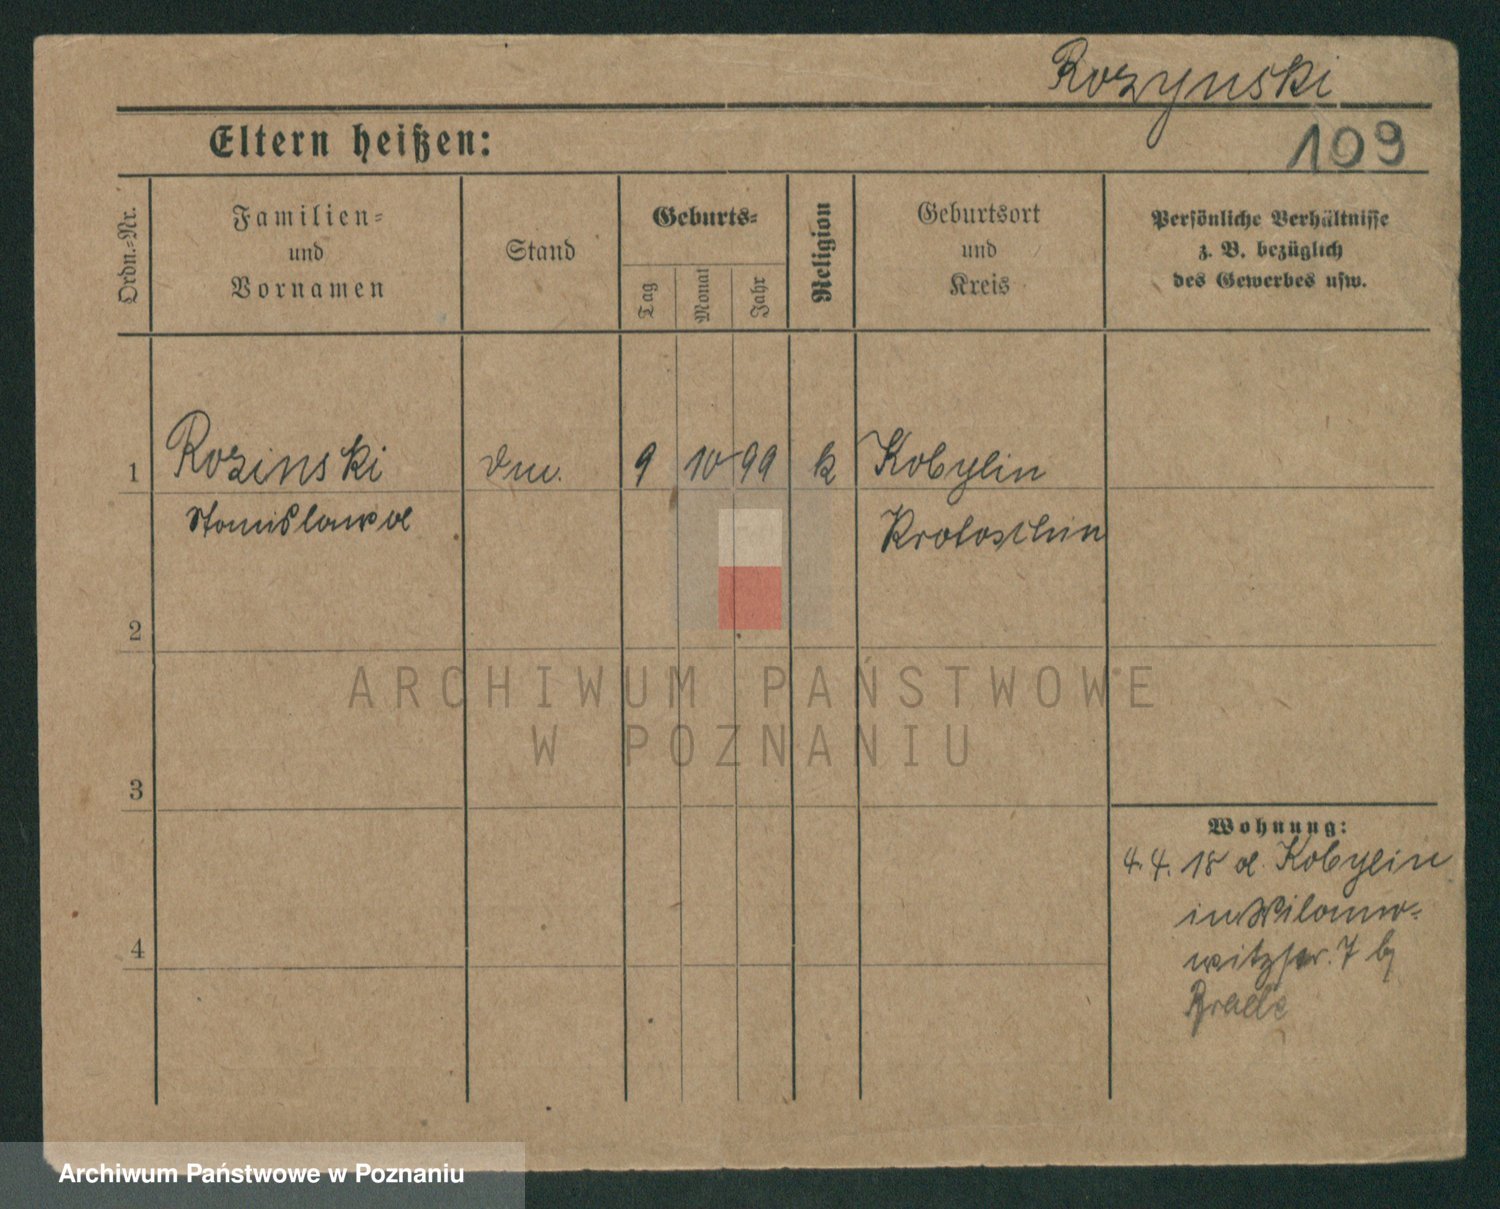 Rozynski
109
Eltern heißen:
Ordn.=Nr.
Familien=
und
Vornamen
Stand
Geburts=
Tag
Monat
Jahr
Religion
Geburtsort
und
Kreis
Persönliche Verhältnisse
z. B. bezüglich
des Gewerbes usw.
1
Rozinski
9
10
99
k
Kobylin
Stanislawa
Krotoschin
2
ARCHIWUM PAŃSTWOWE
W POZNANIU
3
Wohnung:
4. 4. 18 a. Kobylin
in Wilamo-
witzstr. 7 b
4
Archiwum Państwowe w Poznaniu